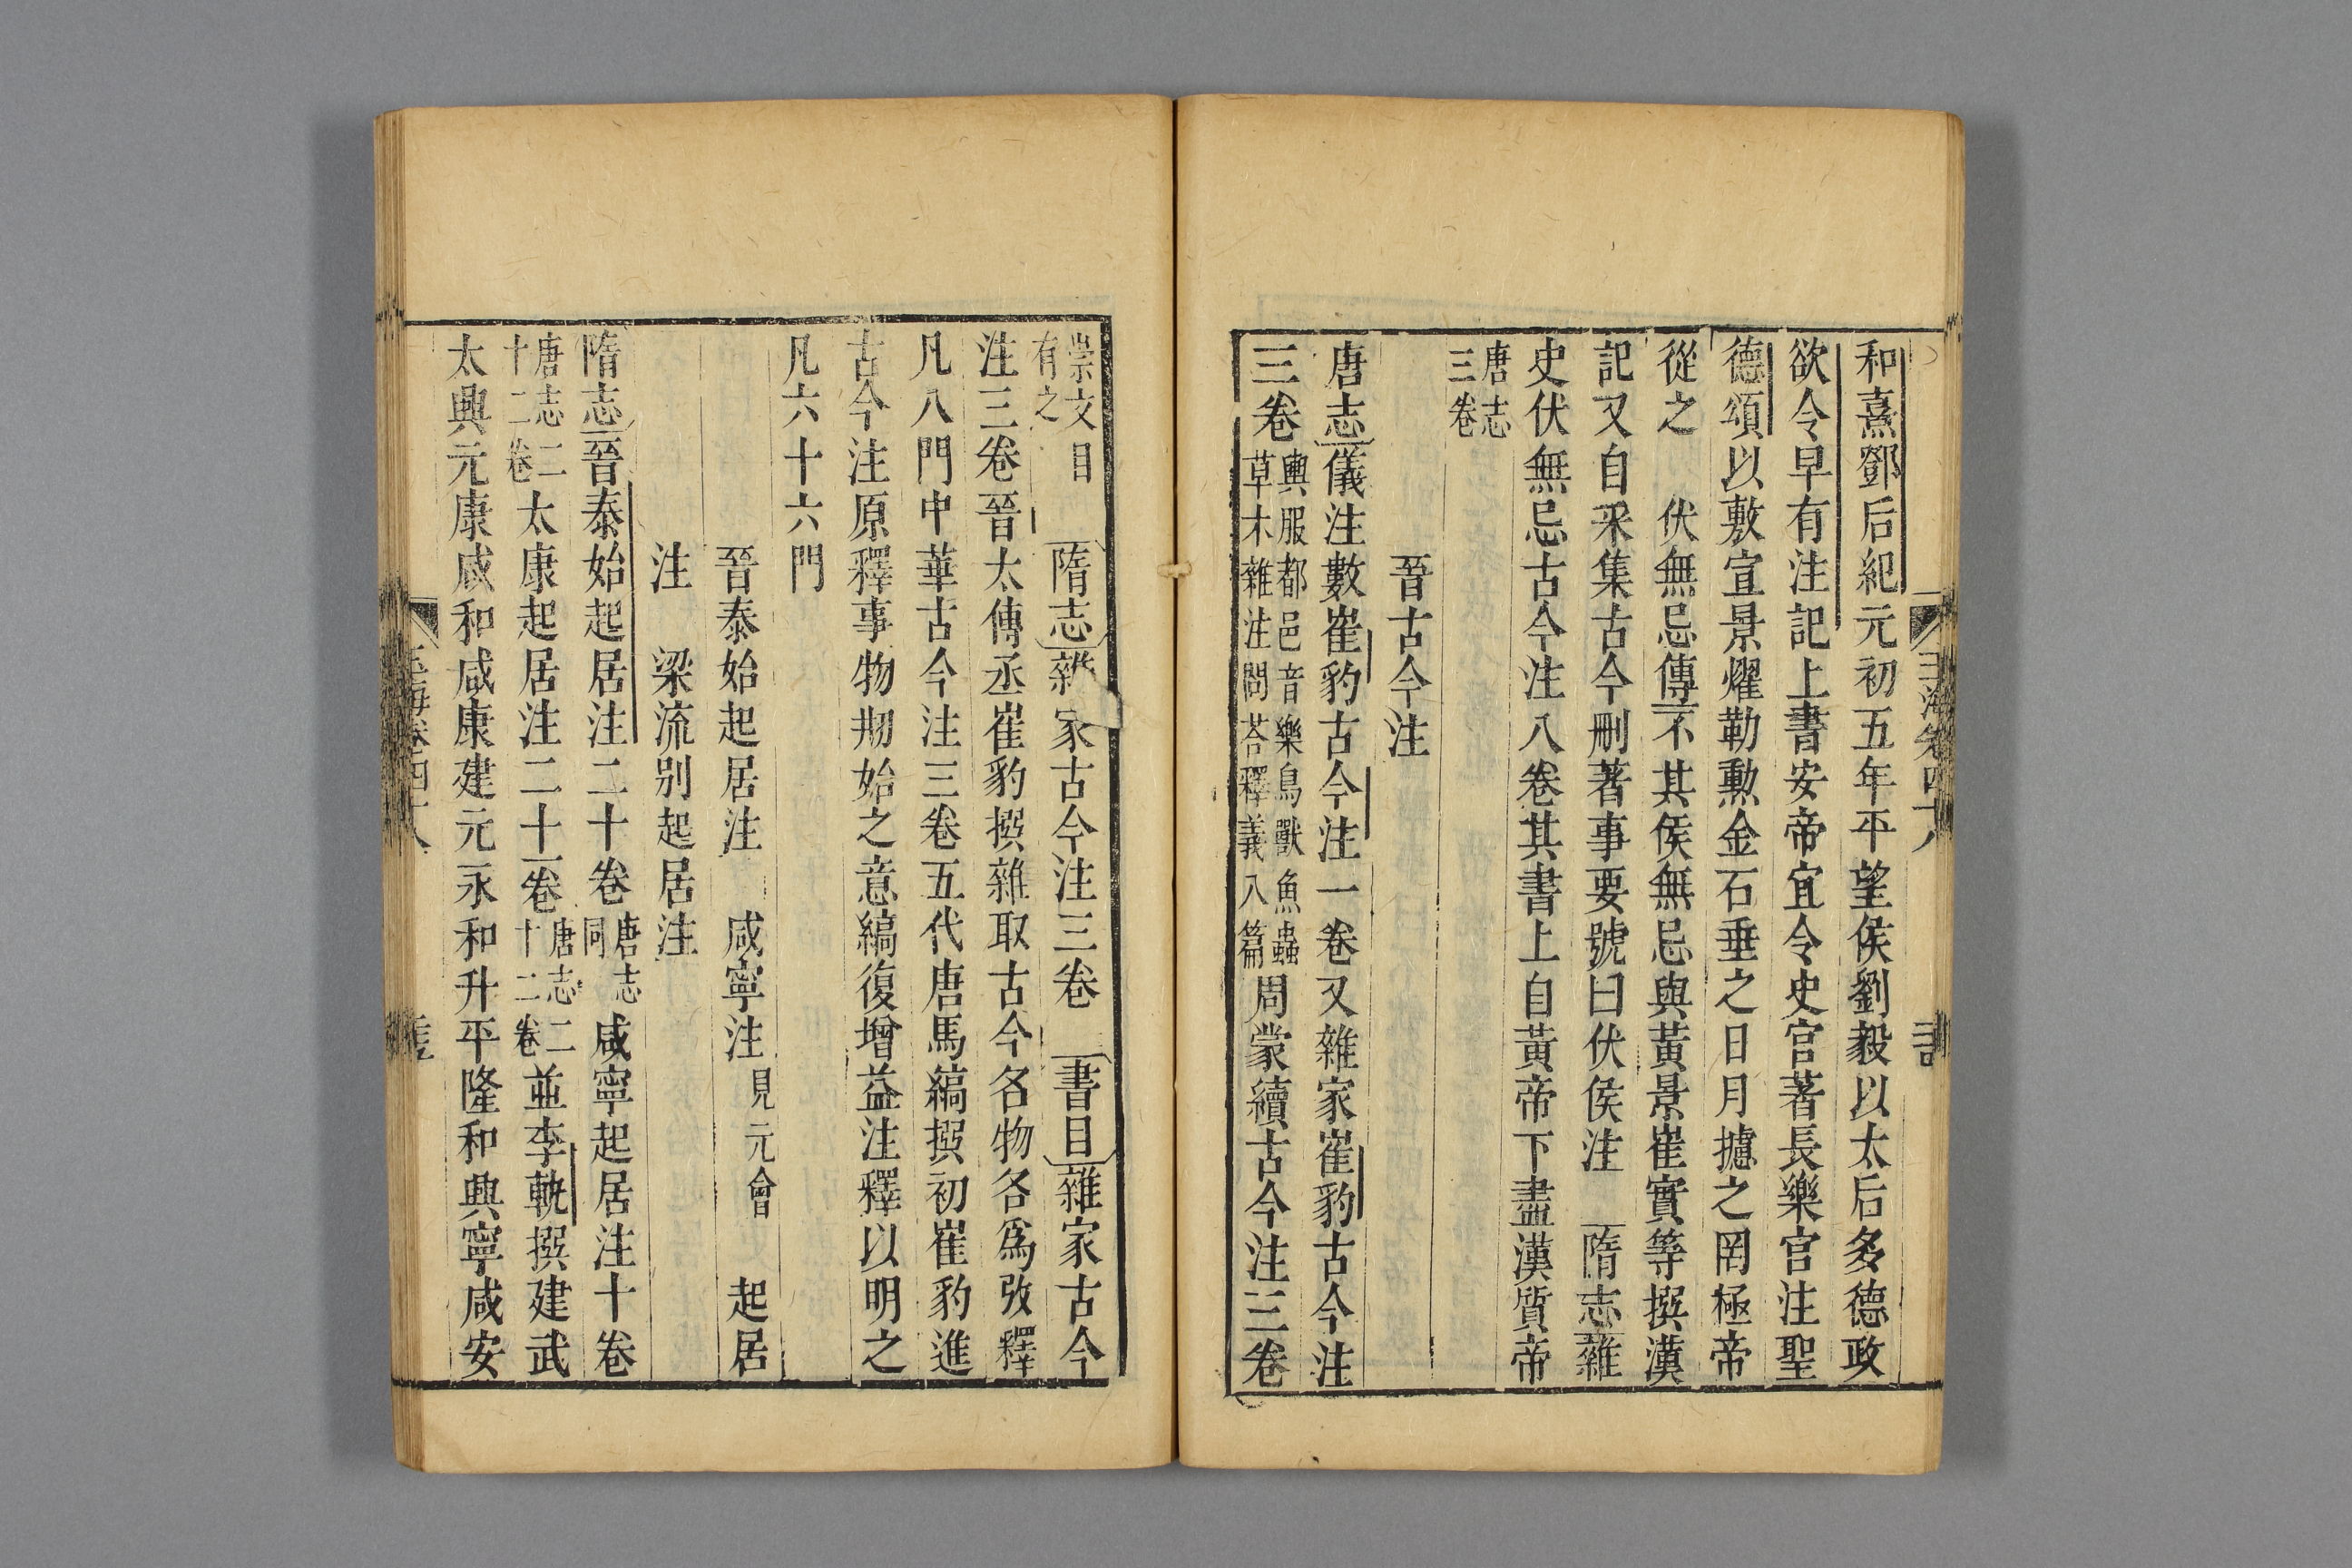 和熹鄧后紀元初五年平望侯劉毅以太后多德政
欲令早有注記上書安帝宜令史官著長樂宮注聖
德頌以敷宣景燿勒勲金石垂之日月攄之罔極帝
從之　伏無忌傳不其侯無忌與黃景崔寔等撰漢
記又自采集古今刪著事要號曰伏侯注　隋志雜
史伏無忌古今注八卷其書上自黃帝下盡漢質帝
唐志
三卷
晉古今注
唐志儀注數崔豹古今注一卷又雜家崔豹古今注
三卷
輿服都邑音樂鳥獸魚蟲
草木雜注問荅釋義八篇
周蒙續古今注三卷
崇文目
有之
隋志雜家古今注三卷　書目雜家古今
注三卷晉太傳丞崔豹撰雜取古今名物各爲攷釋
凡八門中華古今注三卷五代唐馬縞撰初崔豹進
古今注原釋事物刱始之意縞復增益注釋以明之
凡六十六門
晉泰始起居注　咸寧注見元會　起居
注　梁流别起居注
隋志晉泰始起居注二十卷
唐志
同
咸寧起居注十卷
唐志二
十二卷
太康起居注二十一卷
唐志二
十二卷
並李軌撰建武
太興元康咸和咸康建元永和升平隆和興寧咸安